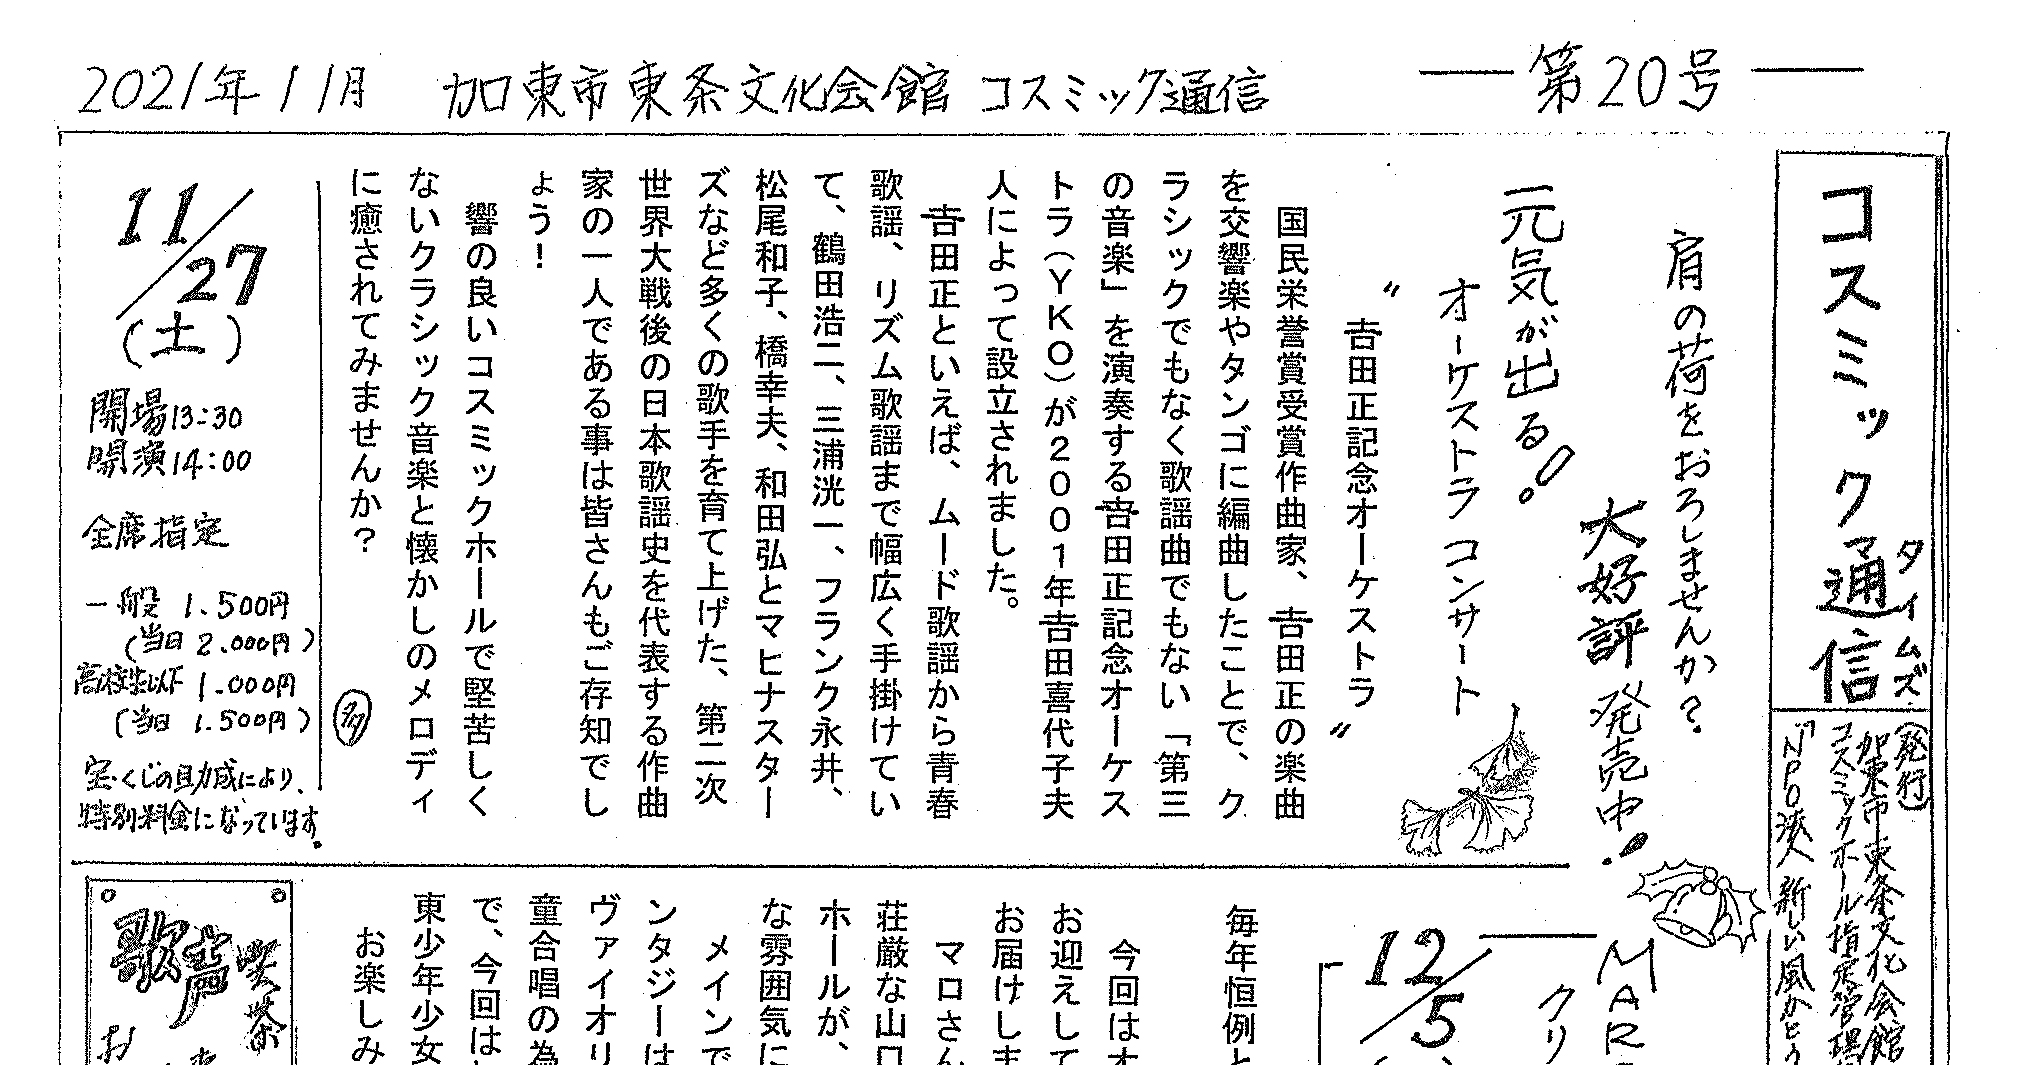 2021年11月 加東市東条文化会館 コスミック通信 ―第20号―
コスミック通信
タイムズ
(発行)
加東市東条文化会館
コスミックホール指定管理
「NPO法人 新しい風かとう
肩の荷をおろしませんか?
大好評 発売中!
元気が出る!
オーケストラ コンサート
〝吉田正記念オーケストラ〟
国民栄誉賞受賞作曲家、吉田正の楽曲
を交響楽やタンゴに編曲したことで、ク
ラシックでもなく歌謡曲でもない「第三
の音楽」を演奏する吉田正記念オーケス
トラ(YKO)が2001年吉田喜代子夫
人によって設立されました。
吉田正といえば、ムード歌謡から青春
歌謡、リズム歌謡まで幅広く手掛けてい
て、鶴田浩二、三浦洸一、フランク永井、
松尾和子、橋幸夫、和田弘とマヒナスター
ズなど多くの歌手を育て上げた、第二次
世界大戦後の日本歌謡史を代表する作曲
家の一人である事は皆さんもご存知でし
ょう!
響の良いコスミックホールで堅苦しく
ないクラシック音楽と懐かしのメロディ
に癒されてみませんか?
多
11/27
(土)
開場13:30
開演14:00
全席指定
一般 1.500円
(当日 2.000円)
高校生以下 1.000円
(当日 1.500円)
宝くじの助成により、
特別料金になっています。
MAR
クリ
12/5
毎年恒例と
今回はオ
お迎えして
お届けしま
マロさん
荘厳な山口
ホールが、
な雰囲気に
メインで
ンタジーは
ヴァイオリ
童合唱の為
で、今回は
東少年少女
お楽しみ
歌声喫茶
お